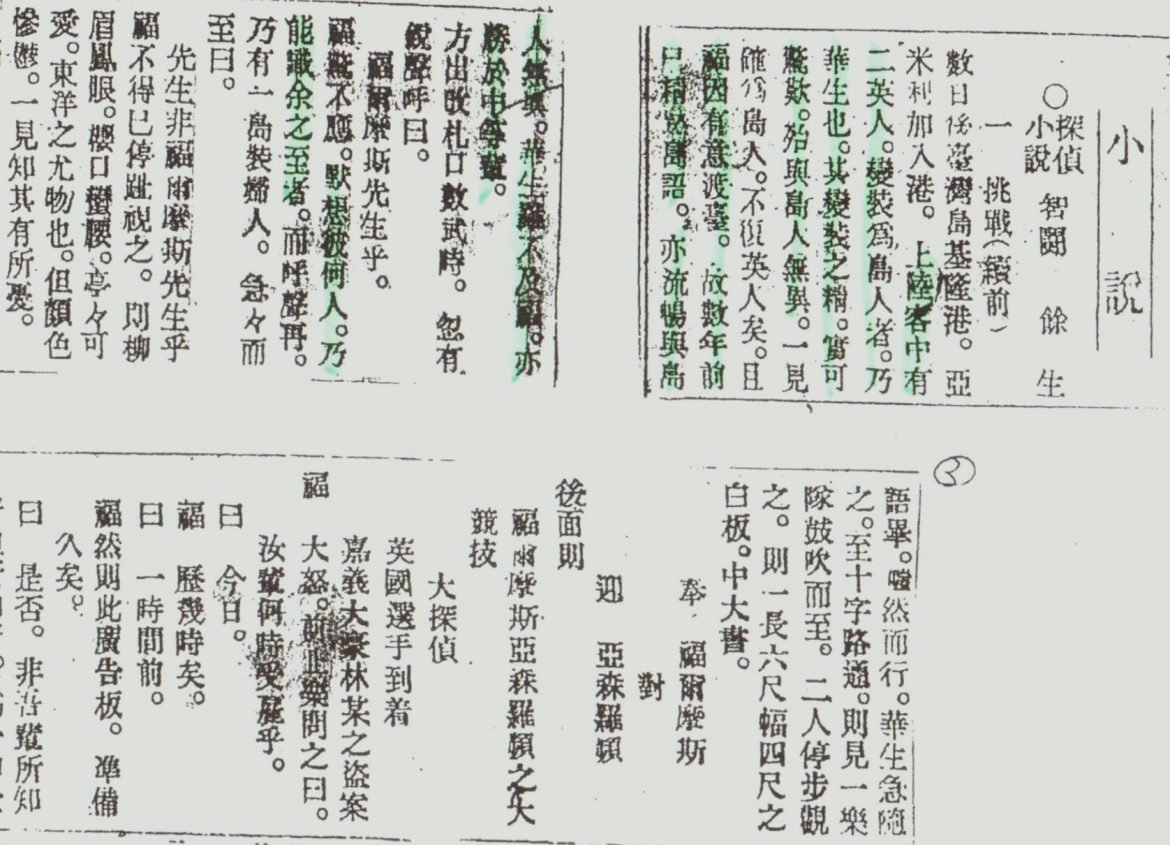 小說
○探偵小說 智鬪 餘生
一 挑戰(續前)
數日後臺灣島基隆港。亞
米利加入港。上陸客中有
二英人。變裝爲島人者。乃
華生也。其變裝之精。實可
驚歎。殆與島人無異。一見
確爲島人。不復英人矣。且
福因有意渡臺。故數年前
已精臺語。亦流暢與島
人無異。華生雖不及福。亦
勝於中等輩。
方出改札口數武時。忽有
銳聲呼曰。
福爾摩斯先生乎。
福驚不應。默想彼何人。乃
能識余之至者。而呼聲再。
乃有一島裝婦人。急々而
至曰。
先生非福爾摩斯先生乎
福不得已停趾視之。則柳
眉鳳眼。櫻口蠻腰。亭々可
愛。東洋之尤物也。但顏色
慘鬱。一見知其有所憂。
3
語畢。嗤然而行。華生急隨
之。至十字路通。則見一樂
隊鼓吹而至。二人停步觀
之。則一長六尺幅四尺之
白板。中大書。
奉 福爾摩斯
對
迎 亞森羅頻
後面則
福爾摩斯亞森羅頻之大
競技
大探偵
英國選手到着
嘉義大豪林某之盜案
福 大怒。止樂問之曰。
汝輩何時受雇乎。
曰 今日。
福 歷幾時矣。
曰 一時間前。
福 然則此廣告板。準備
久矣。
曰 是否。非吾輩所知